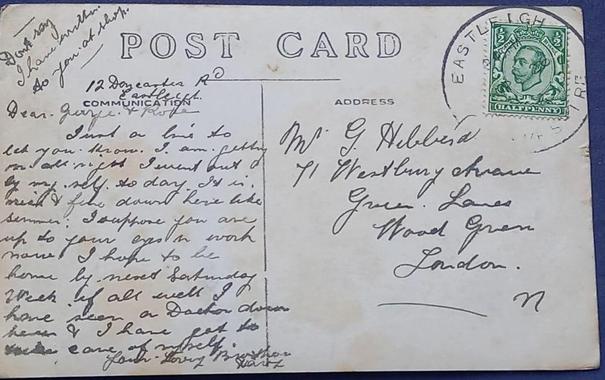 Dont say
I have written
to you at shop.
POST CARD
12 Doncaster Rd
Eastleigh
COMMUNICATION
ADDRESS
Dear George & Rose
Just a line to
let you know I am getting
on all right I went out
by my self to day. It is
nice & fine down here like
summer. I suppose you are
up to your eyes in work
now I hope to be
home by next Saturday
Week if all well I
have seen a Doctor down
here & I have got to
take care of myself.
Your Loving Brother
Mr G. Hibberd
71 Westbury Avenue
Green Lanes
Wood Green
London.
N
EASTLEIGH
½
½
HALFPENNY